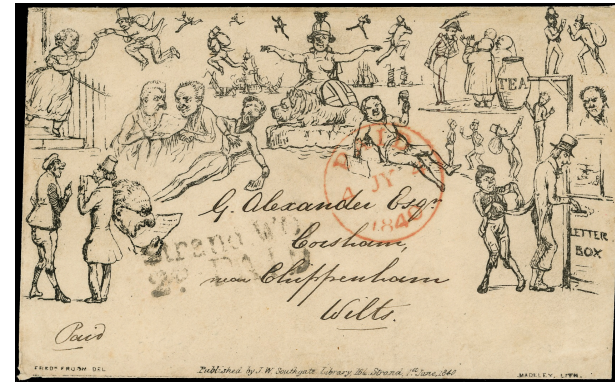 TEA
PAID
4 JY 4
1840
G. Alexander Esqr
Corsham,
near Chippenham
Wilts.
Strand WO
LETTER
BOX
Paid
FREDK. FRUSH DEL.
Published by J. W. Southgate, Library, 164, Strand, 1st June, 1840
MADELEY, LITH.